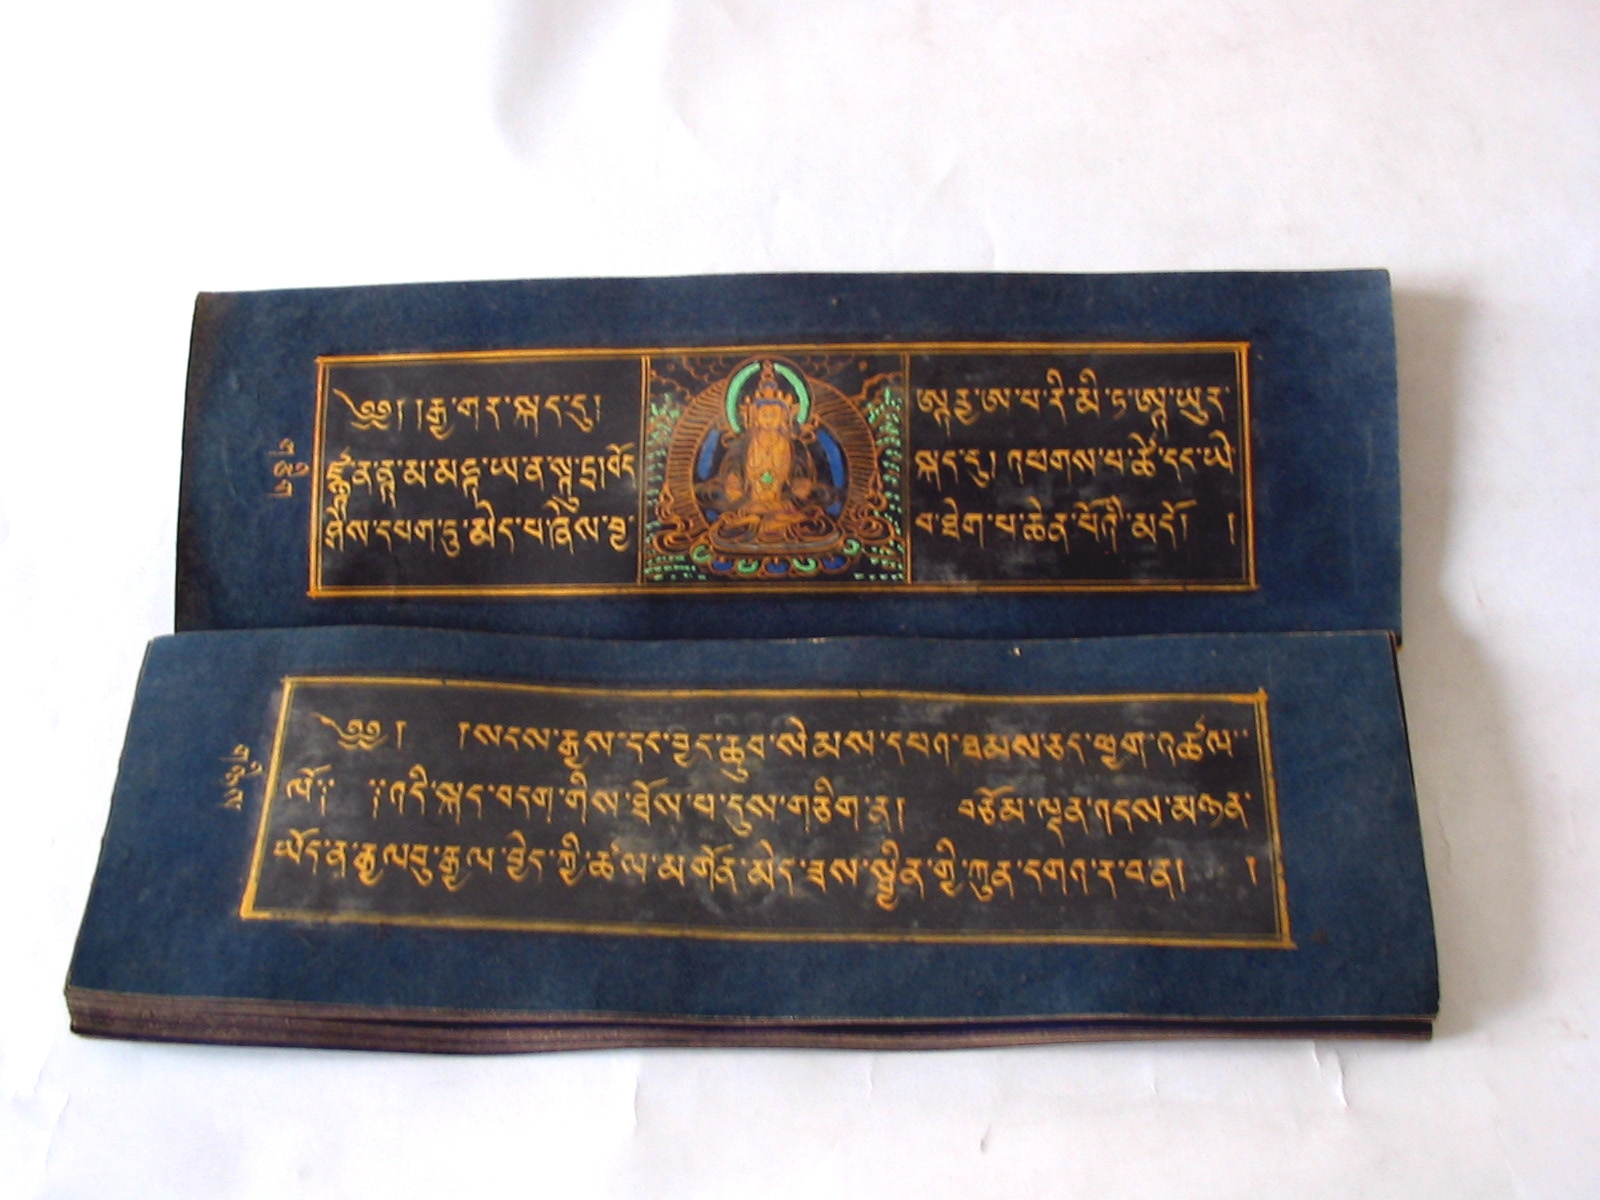 ག་ཅིག
༄༅། །རྒྱ་གར་སྐད་དུ།
ཨཱརྱ་ཨ་པ་རི་མི་ཏ་ཨཱ་ཡུར་
ཛྙཱ་ན་ནཱ་མ་མ་ཧཱ་ཡ་ན་སཱུ་ཏྲ། བོད་
སྐད་དུ། འཕགས་པ་ཚེ་དང་ཡེ་
ཤེས་དཔག་ཏུ་མེད་པ་ཞེས་བྱ་
བ་ཐེག་པ་ཆེན་པོའི་མདོ། །
༄༅། །སངས་རྒྱས་དང་བྱང་ཆུབ་སེམས་དཔའ་ཐམས་ཅད་ལ་ཕྱག་འཚལ་
ལོ༔ ༔འདི་སྐད་བདག་གིས་ཐོས་པ་དུས་གཅིག་ན། བཅོམ་ལྡན་འདས་མཉན་
ཡོད་ན་རྒྱལ་བུ་རྒྱལ་བྱེད་ཀྱི་ཚལ་མགོན་མེད་ཟས་སྦྱིན་གྱི་ཀུན་དགའ་ར་བ་ན། །